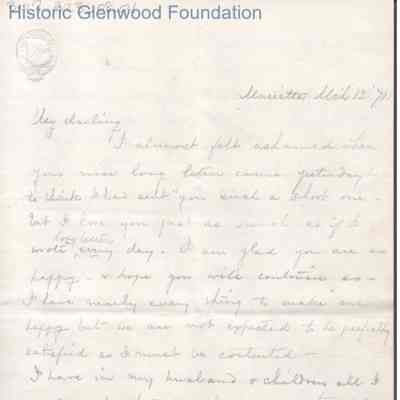 Historic Glenwood Foundation
Marietta 12 '71
My darling
I almost felt ashamed when
your nice long letter came yesterday
to think I had sent you such a short one -
but I love you just as much as if I
wrote long letters every day. I am glad you are so
happy - & hope you will continue so -
I have nearly every thing to make me
happy but we are not expected to be perfectly
satisfied so I must be contented -
I have in my husband & children all I